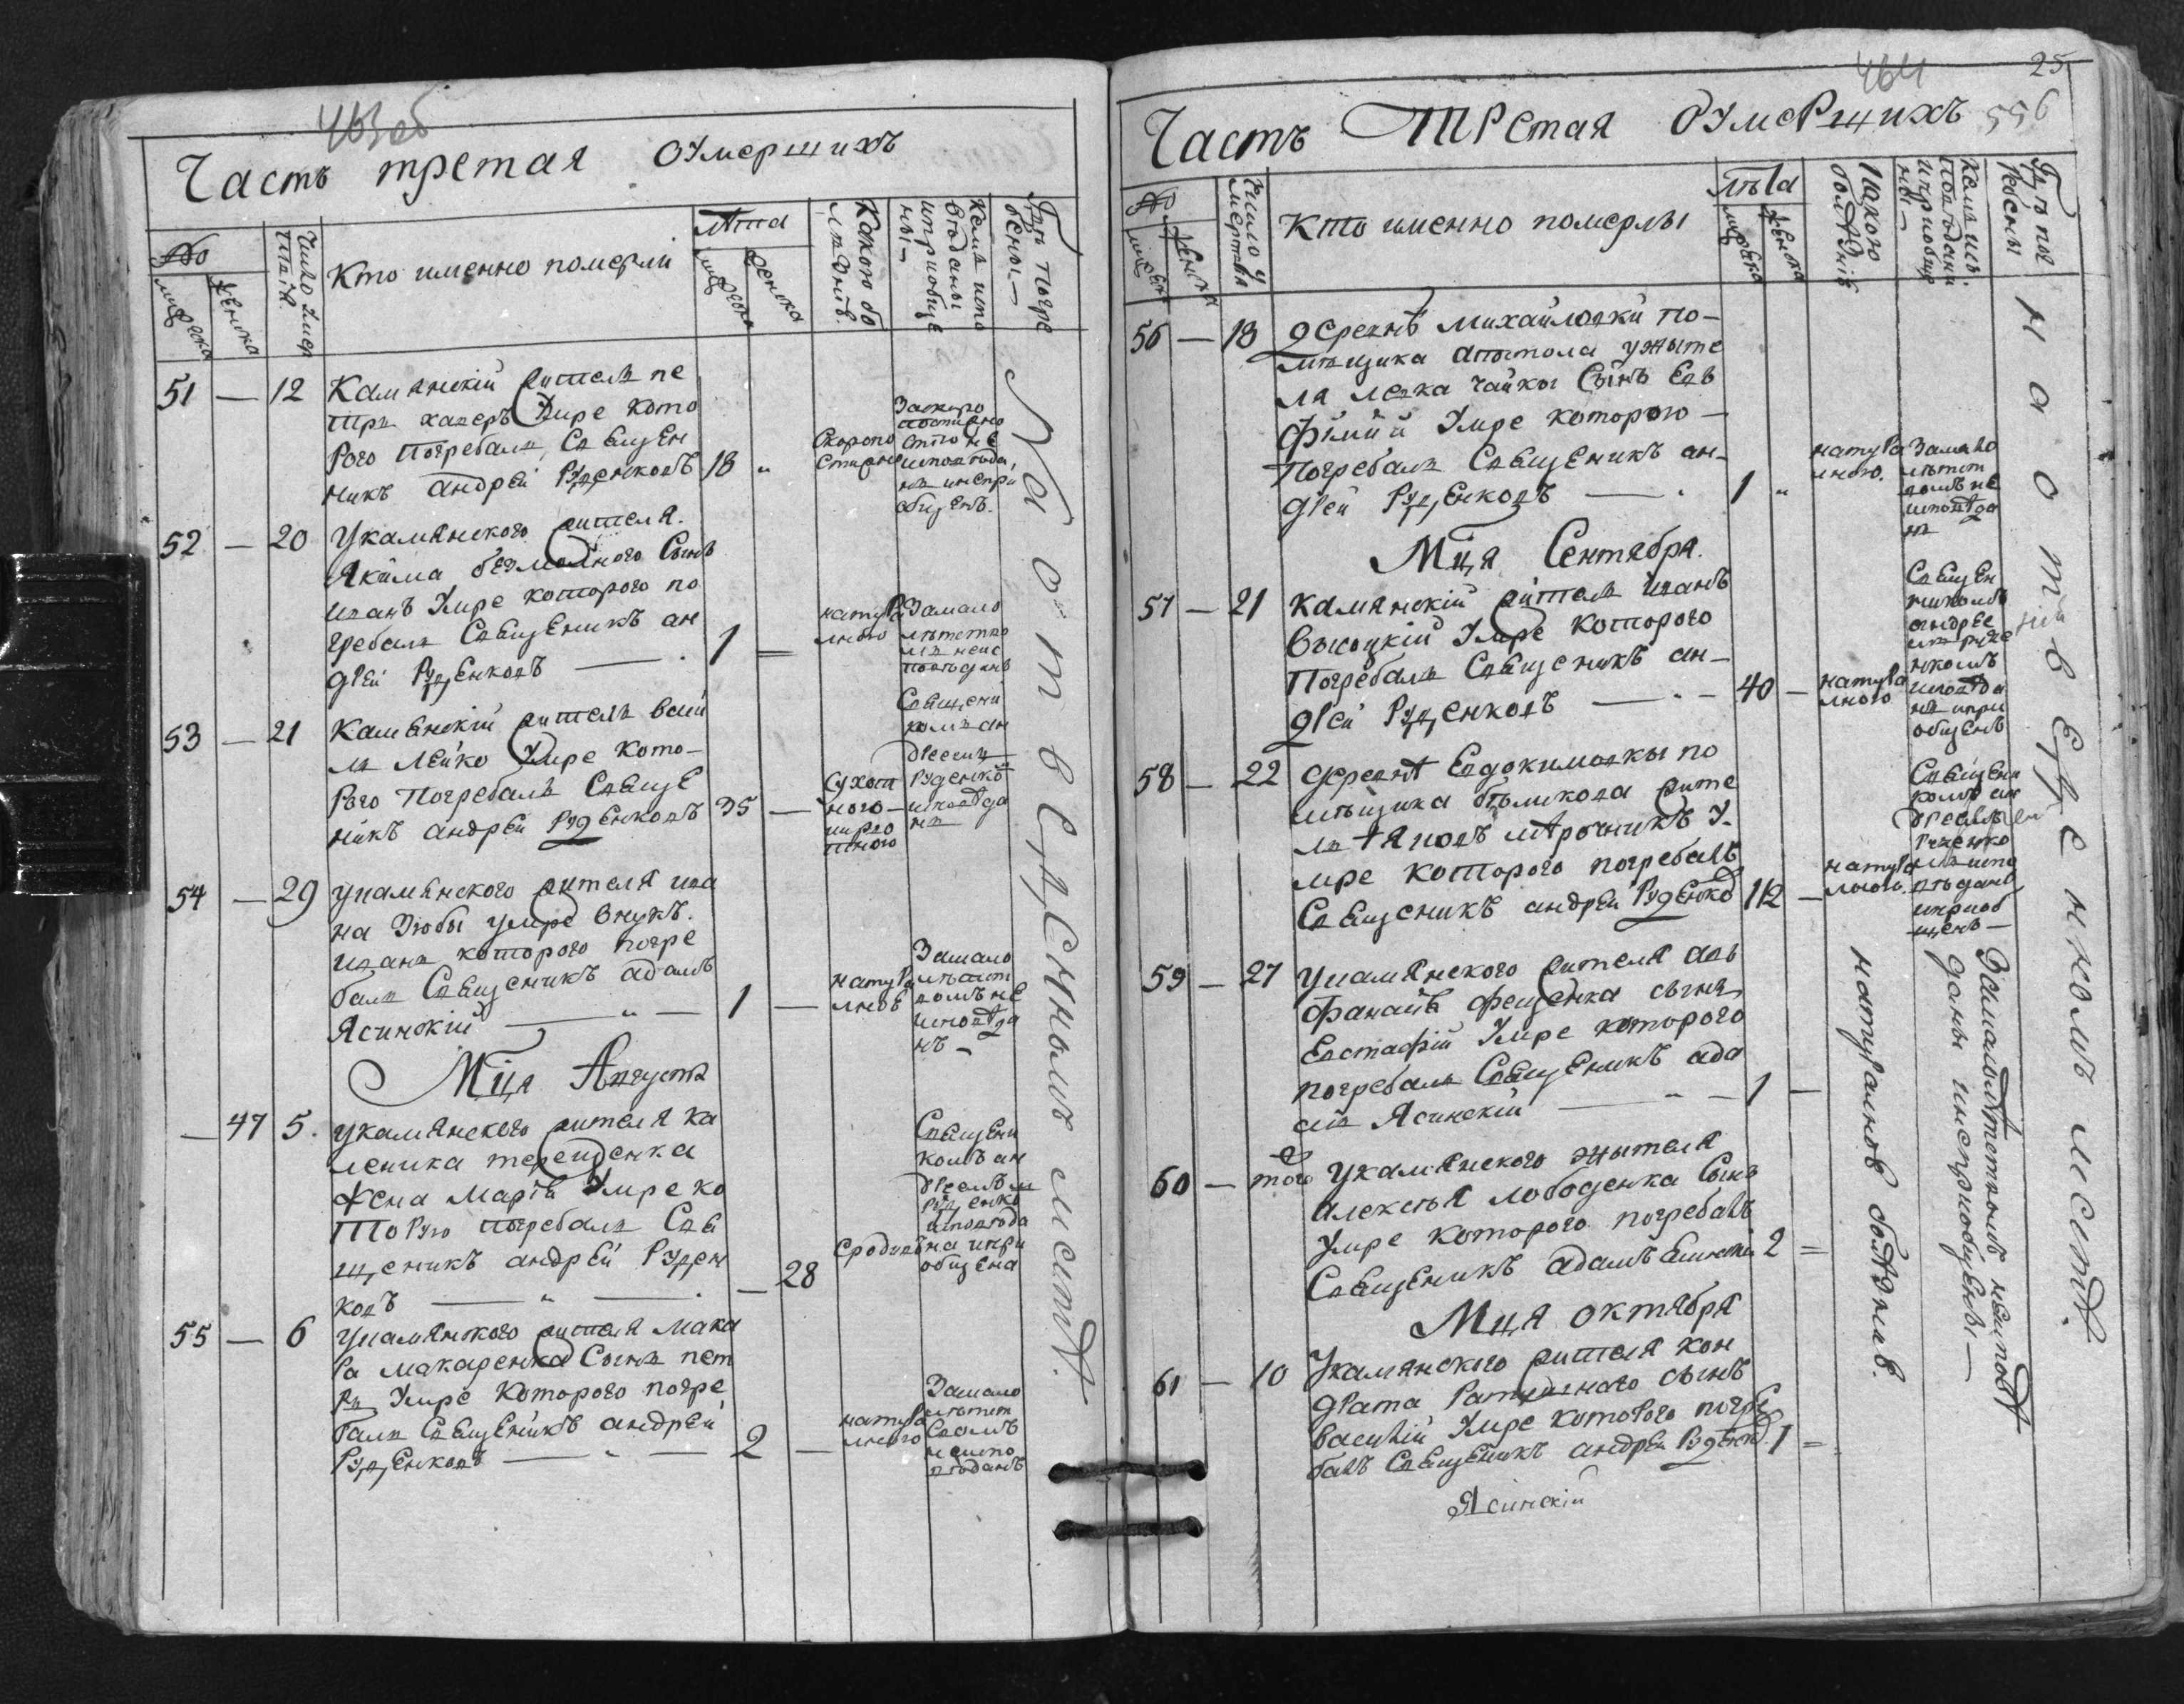 463об
Часть третая ОУмерших
№
мужеска
женска
Число умер
твія
Кто именно померли
Лѣта
мужеска
женска
Какою бо
лѣзнію
Кемъ испо
вѣданы
ипріобще
ны –
Гдѣ погре
бены –
51 — 12 Камянскій житель пе
тръ Умре кото
рого погребалъ Священ
никъ андрей Руденковъ 18 "
Скоропо
стижно
исповѣда,
нъ инепри
общенъ.
52 — 20 Укамянского жителя.
Якима безмолного Сынъ
иванъ Умре которого по
гребалъ Священикъ ан
дрей Руденковъ — 1 =
натура
лного
Замало
лѣтство
мъ неис
повѣданъ
53 — 21 Камянскій житель васи
лъ Лейко Умре кото–
рого Погребалъ Священ
никъ андрей Руденковъ 35 —
Сухот
ного –
Священи
комъ ан
дреемъ
Руденко
исповѣда
нъ
54 — 29 укамянского жителя ива
на Зюбы умре Внукъ.
иванъ которого погре
балъ Священикъ адамъ
Ясинскій — " — 1 —
натура
лноѣ
Замало
лѣтст
вомъ не
исповѣда
нъ –
Мца Августа
— 47 5. укамянского жителя ка
леника терещенка
жена Марія Умре ко
торую погребалъ Свя
щеникъ андрей Руден
ковъ — " — . — 28
Сродивъ
Священи
комъ ан
дреемъ
Руденко
исповѣда
на ипри
общена
55 — 6 укамянского жителя мака
ра макаренка Сынъ пет
ръ Умре которого погре
балъ Священикъ андрей
Руденковъ — " — 2 —
натура
лного
Замало
лѣтст
вомъ
неиспо
вѣданъ
На отведенномъ местѣ.
464
25
556
Часть Третая ОУмерщихъ
№
мужеска
женска
Число у
мертвія
Кто именно померлы
лѣта
мужеска
женска
Какою
болѣзнію
Кемъ ис.
повѣданы
ипріобще
ны –
Гдѣ по
гребены
56 — 18 деревнѣ михайловки по–
мѣщика апостола ужыте
ля левка чайкы Сынъ Ев
фимій Умре которого —
погребалъ Священикъ ан–
дрей Руденковъ — . 1 "
натура
лного.
Замало
лѣтст
вомъ не
исповѣда
нъ
Мца Сентября.
57 — 21 Камянскій житель иванъ
высоцкій Умре которого
Погребалъ Священикъ ан–
дрей Руденковъ — . — 40 —
натура
лного
Священ
никомъ
андрее
мъ руде
нкомъ
исповѣда
нъ ипри
общенъ
58 — 22 деревнѣ Евдокимовкы по
мѣщика бѣликова жите
лъ У–
мре которого погребалъ
Священикъ андрей Руденко 112 —
натура
лного.
Священи
комъ ан
дреемъ
Руденко
мъ испо
вѣданъ
ипріоб
щенъ –
59 — 27 укамянского жителя
фанаія фещенка сынъ
Евстафій Умре которого
погребалъ Священикъ ада
мъ Ясинскій — " — 1 —
60 — того укамянского жытеля
алексѣя лободенка Сынъ
Умре которого погребалъ
Священикъ адамъ Ясинскій 2 =
Мця октября
61 — 10 Укамянского жителя кон
драта Ратушного сынъ
василій Умре которого погре
балъ Священикъ андрей Руденко. 1 =
натуралноѣ болѣзнію.
Замалолѣтствомъ неисповѣ
даны инепріобщены —
На отведенномъ местѣ.
Ясинскій